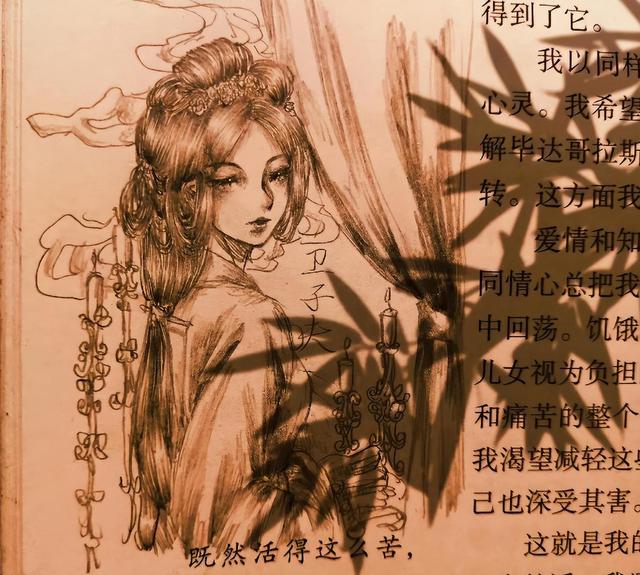 得到了它。
我以同样
心灵。我希望
解毕达哥拉斯
转。这方面我
爱情和知
同情心总把我
中回荡。饥饿
儿女视为负担
和痛苦的整个
我渴望减轻这些
己也深受其害。
这就是我的
卫子夫
既然活得这么苦，